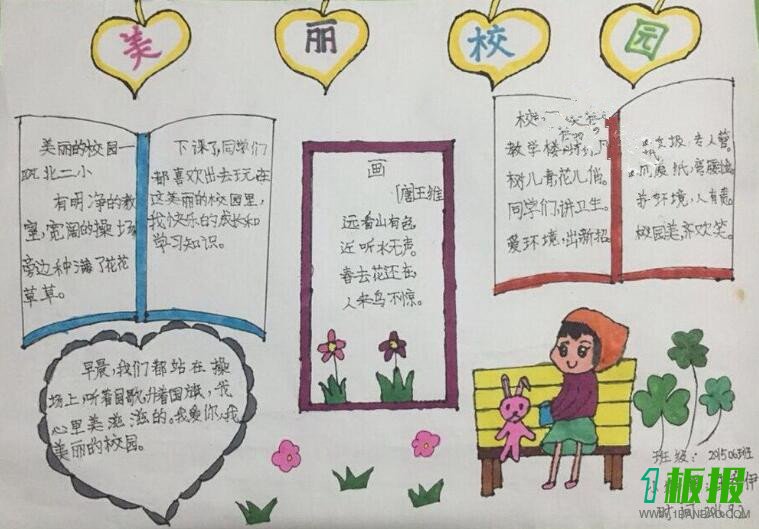 美丽校园
美丽的校园一
北二小
有明净的教
室,宽阔的操场
旁边种满了花花
草草。
下课了,同学们
都喜欢出去玩在
这美丽的校园里,
我快乐的成长和
学习知识。
画
[唐]王维
远看山有色,
近听水无声。
春去花还在,
人来鸟不惊。
校
教学楼
树儿青,花儿俏。
同学们,讲卫生。
爱环境,出新招
专人管。
弯腰
养环境,人有责。
校园美,齐欢笑。
早晨,我们都站在操
场上,听着国歌,升着国旗,我
心里美滋滋的。我爱你,我
美丽的校园。
班级:201506班
时间
1板报
WWW.1BANBAO.COM